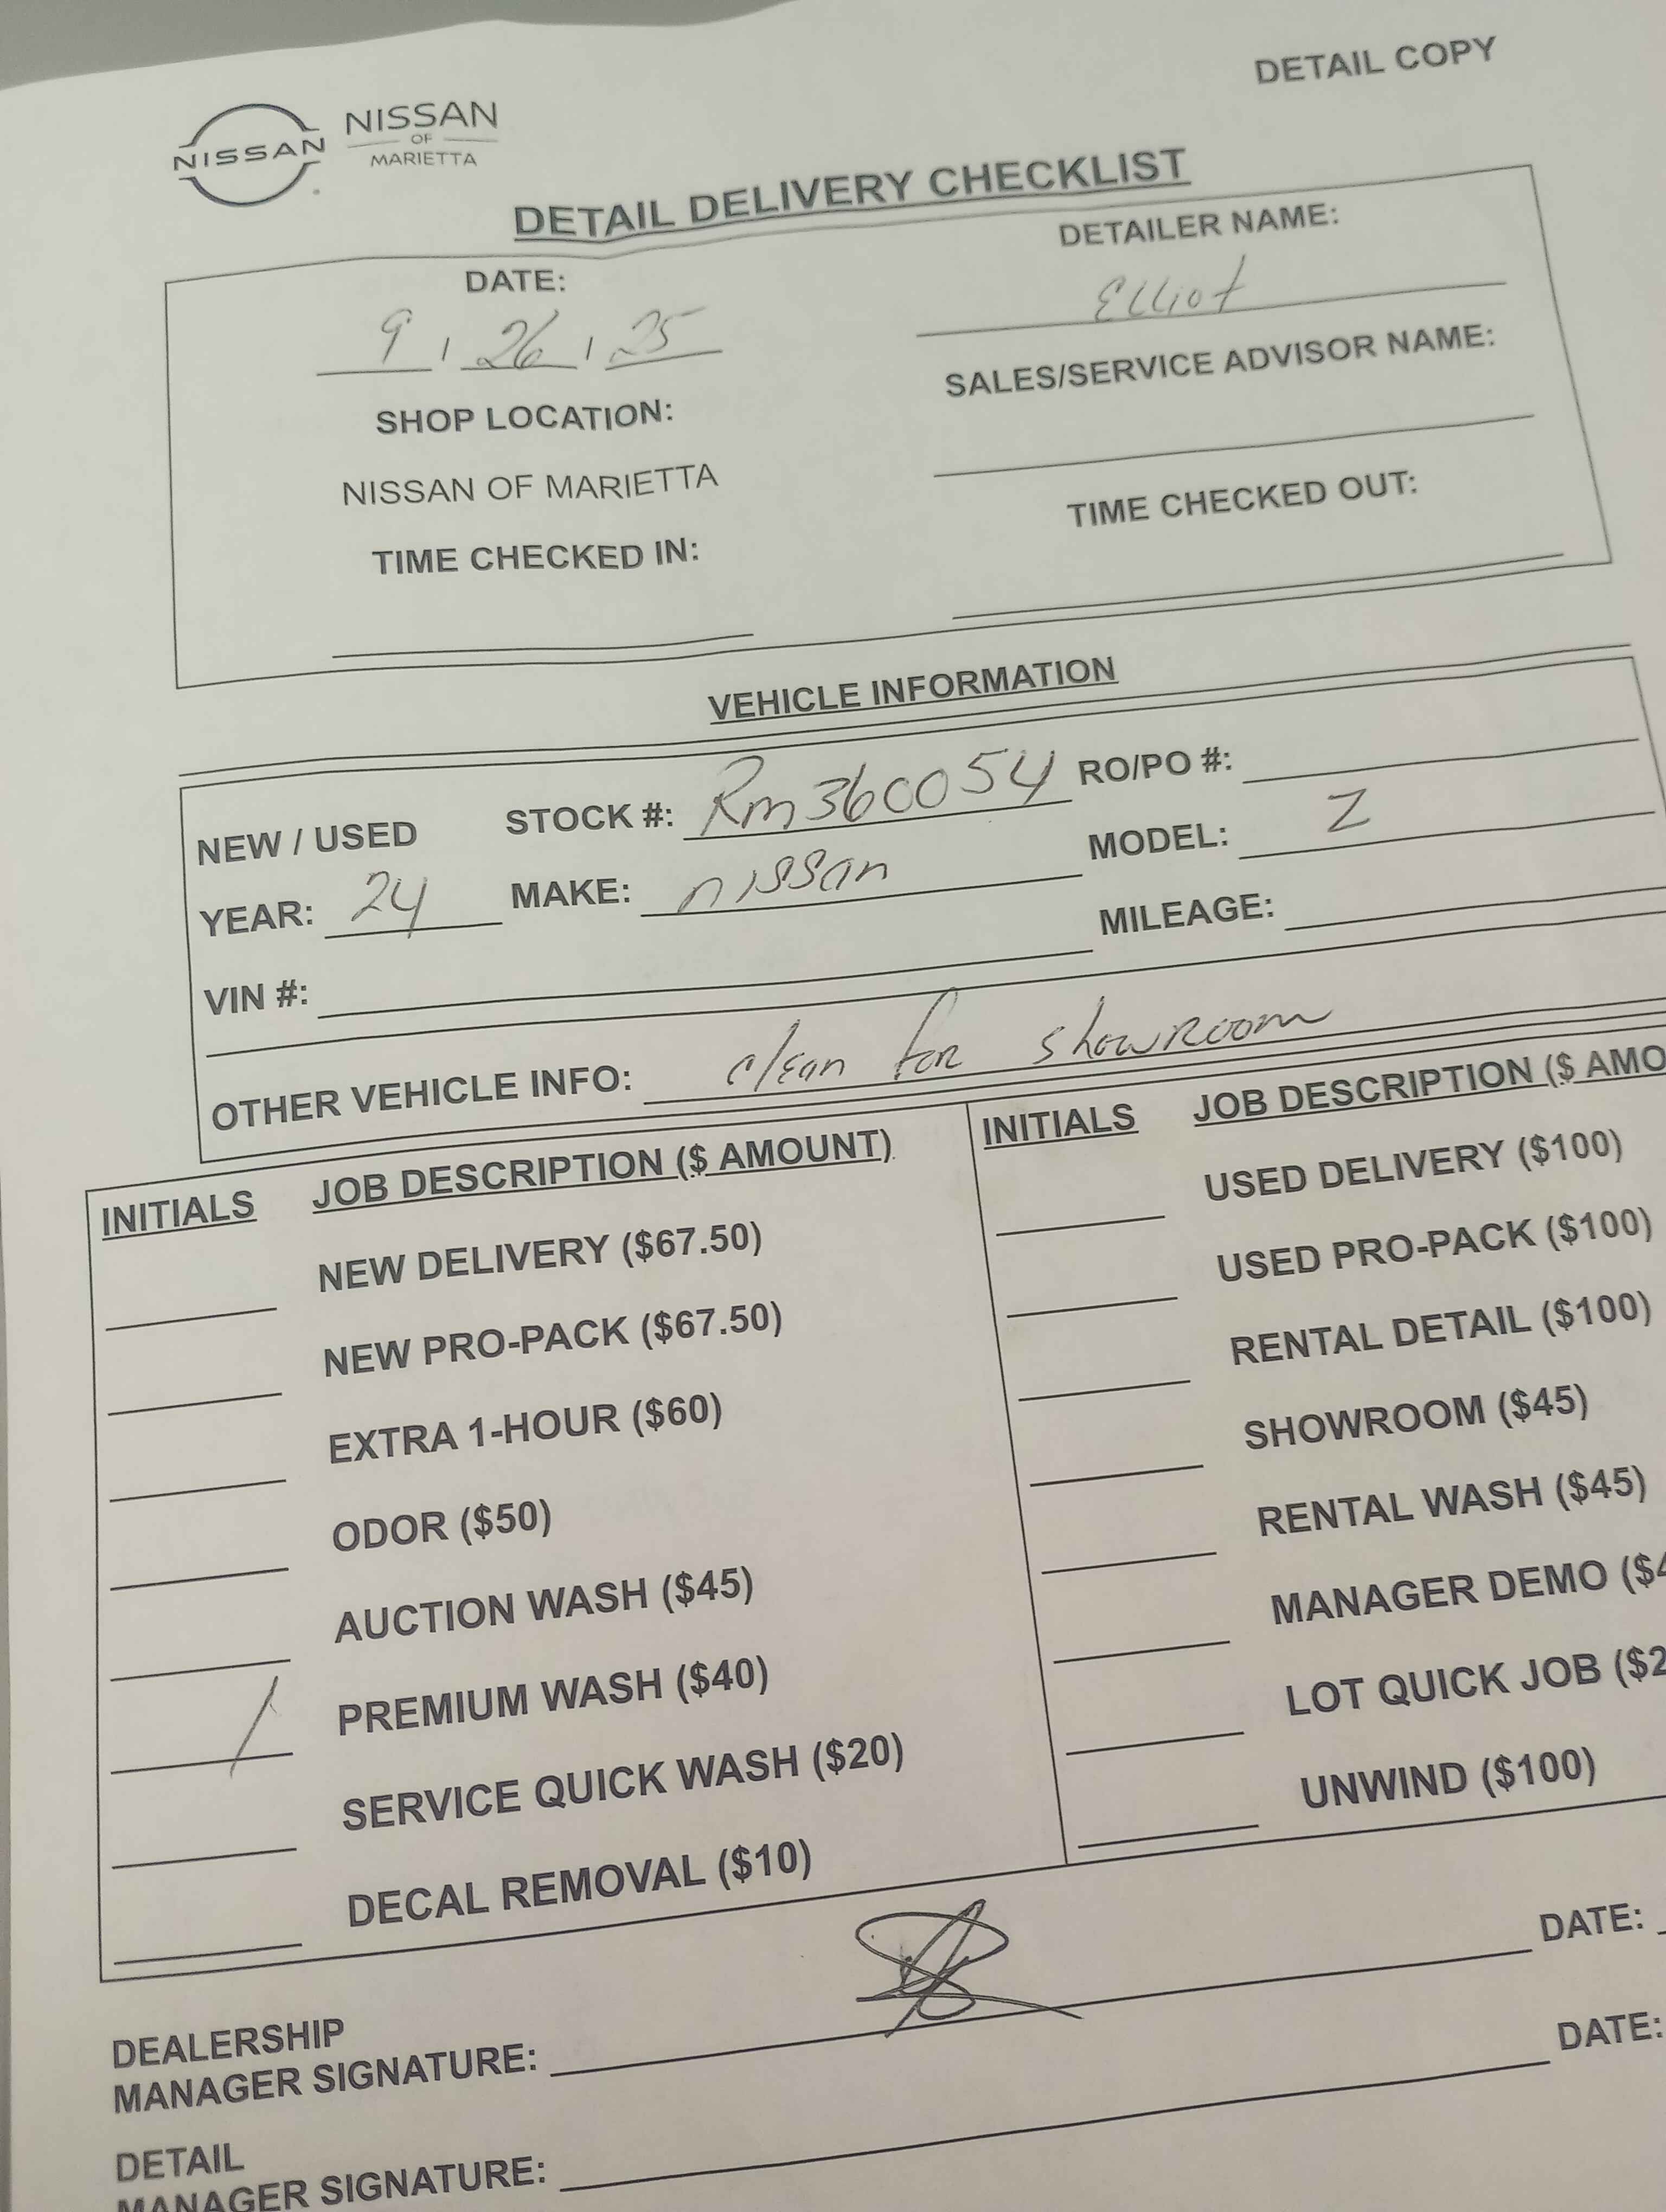 DETAIL COPY
NISSAN
NISSAN
OF
MARIETTA
DETAIL DELIVERY CHECKLIST
DATE:
9 / 26 / 25
DETAILER NAME:
Elliot
SHOP LOCATION:
NISSAN OF MARIETTA
SALES/SERVICE ADVISOR NAME:
TIME CHECKED IN:
TIME CHECKED OUT:
VEHICLE INFORMATION
NEW / USED STOCK #: Rm360054 RO/PO #:
YEAR: 24 MAKE: nissan MODEL: Z
VIN #: MILEAGE:
OTHER VEHICLE INFO: clean for showroom
INITIALS JOB DESCRIPTION ($ AMOUNT)
NEW DELIVERY ($67.50)
NEW PRO-PACK ($67.50)
EXTRA 1-HOUR ($60)
ODOR ($50)
AUCTION WASH ($45)
/ PREMIUM WASH ($40)
SERVICE QUICK WASH ($20)
DECAL REMOVAL ($10)
INITIALS JOB DESCRIPTION ($ AMO
USED DELIVERY ($100)
USED PRO-PACK ($100)
RENTAL DETAIL ($100)
SHOWROOM ($45)
RENTAL WASH ($45)
MANAGER DEMO ($4
LOT QUICK JOB ($2
UNWIND ($100)
DEALERSHIP
MANAGER SIGNATURE: DATE:
DETAIL
MANAGER SIGNATURE: DATE: